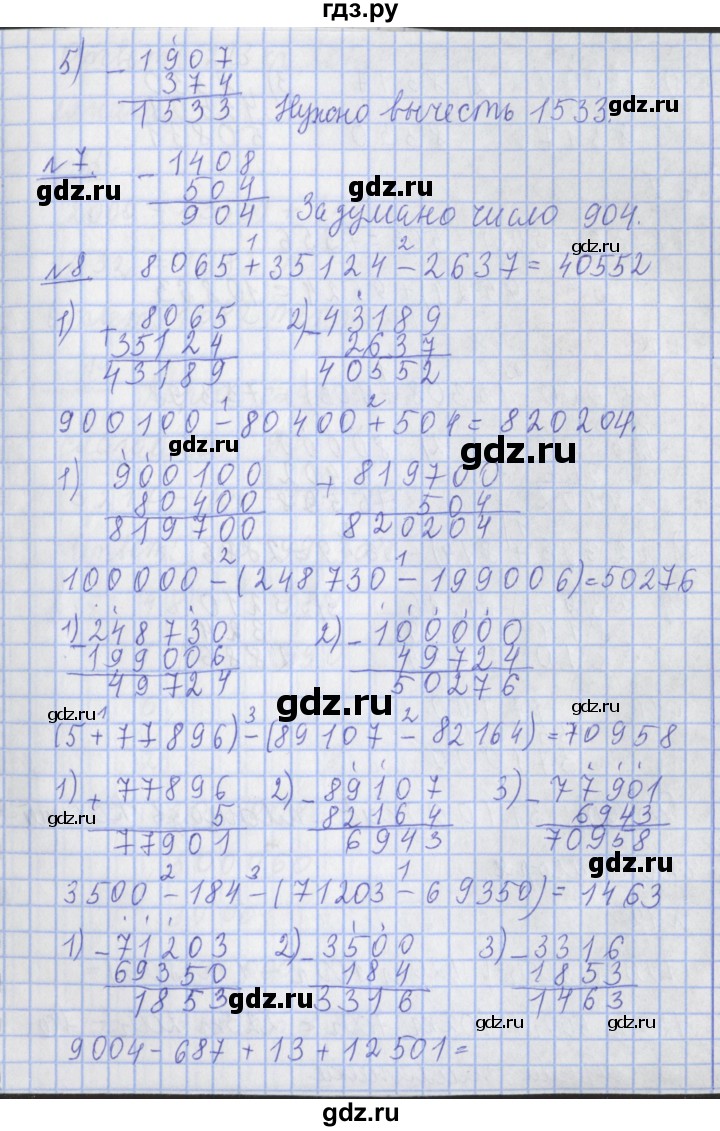 гдз.ру
5) - 1907
374
1533 Нужно вычесть 1533.
gdz.ru
№7. - 1408
gdz.ru gdz.ru
504
904 Задумано число 904.
gdz.ru
1 2
№8 8065 + 35124 - 2637 = 40552
1) + 8065 2) - 43189
35124 2637
43189 40552
1 2
900100 - 80400 + 504 = 820204.
gdz.ru gdz.ru
1) 900100 + 819700
80400 504
819700 820204
2 1
100000 - (248730 - 199006) = 50276
1) - 248730 2) - 100000
199006 49724
49724 50276
gdz.ru gdz.ru gdz.ru
1 3 2
(5 + 77896) - (89107 - 82164) = 70958
1) + 77896 2) - 89107 3) - 77901
5 82164 6943
77901 6943 70958
gdz.ru
2 3 1
3500 - 184 - (71203 - 69350) = 1463
1) - 71203 2) - 3500 3) - 3316
69350 184 1853
1853 3316 1463
gdz.ru gdz.ru gdz.ru
9004 - 687 + 13 + 12501 =
gdz.ru